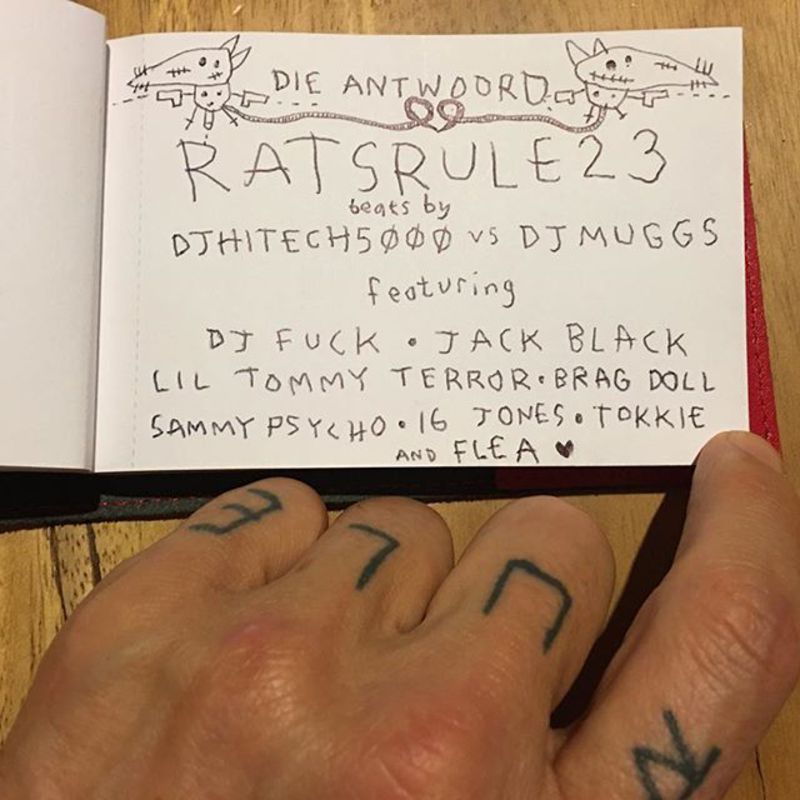 DIE ANTWOORD
RATSRULE23
beats by
DJHITECH5ØØØ vs DJ MUGGS
featuring
DJ FUCK • JACK BLACK
LIL TOMMY TERROR • BRAG DOLL
SAMMY PSYCHO • 16 JONES • TOKKIE
AND FLEA ♥
RULE